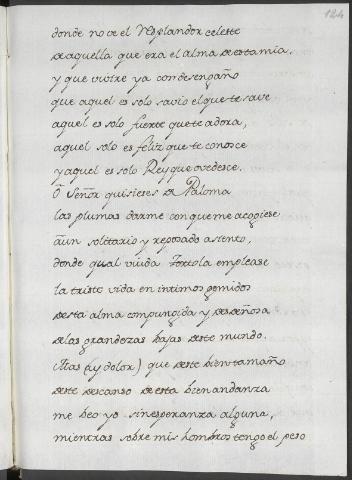 124
donde no ve el Resplandor celeste
de aquella que era el alma de esta mia.
y que vivire ya con desengaño
que aquel es solo savio el que te save
aquel es solo fuerte que te adora,
aquel solo es feliz que te conosce
y aquel es solo Rey que ovedesce.
Ô Señor quisieses de Paloma
las plumas darme con que me acogiese
aun solitario y reposado asiento,
donde qual viuda Tortola emplease
la triste vida en intimos gemidos
desta alma compungida y desdeñosa
de las grandezas bajas deste mundo.
Mas (ay dolor) que deste bien tamaño
deste descanso de esta bienandanza
me beo yo sin esperanza alguna,
mientras sobre mis hombros tengo el peso